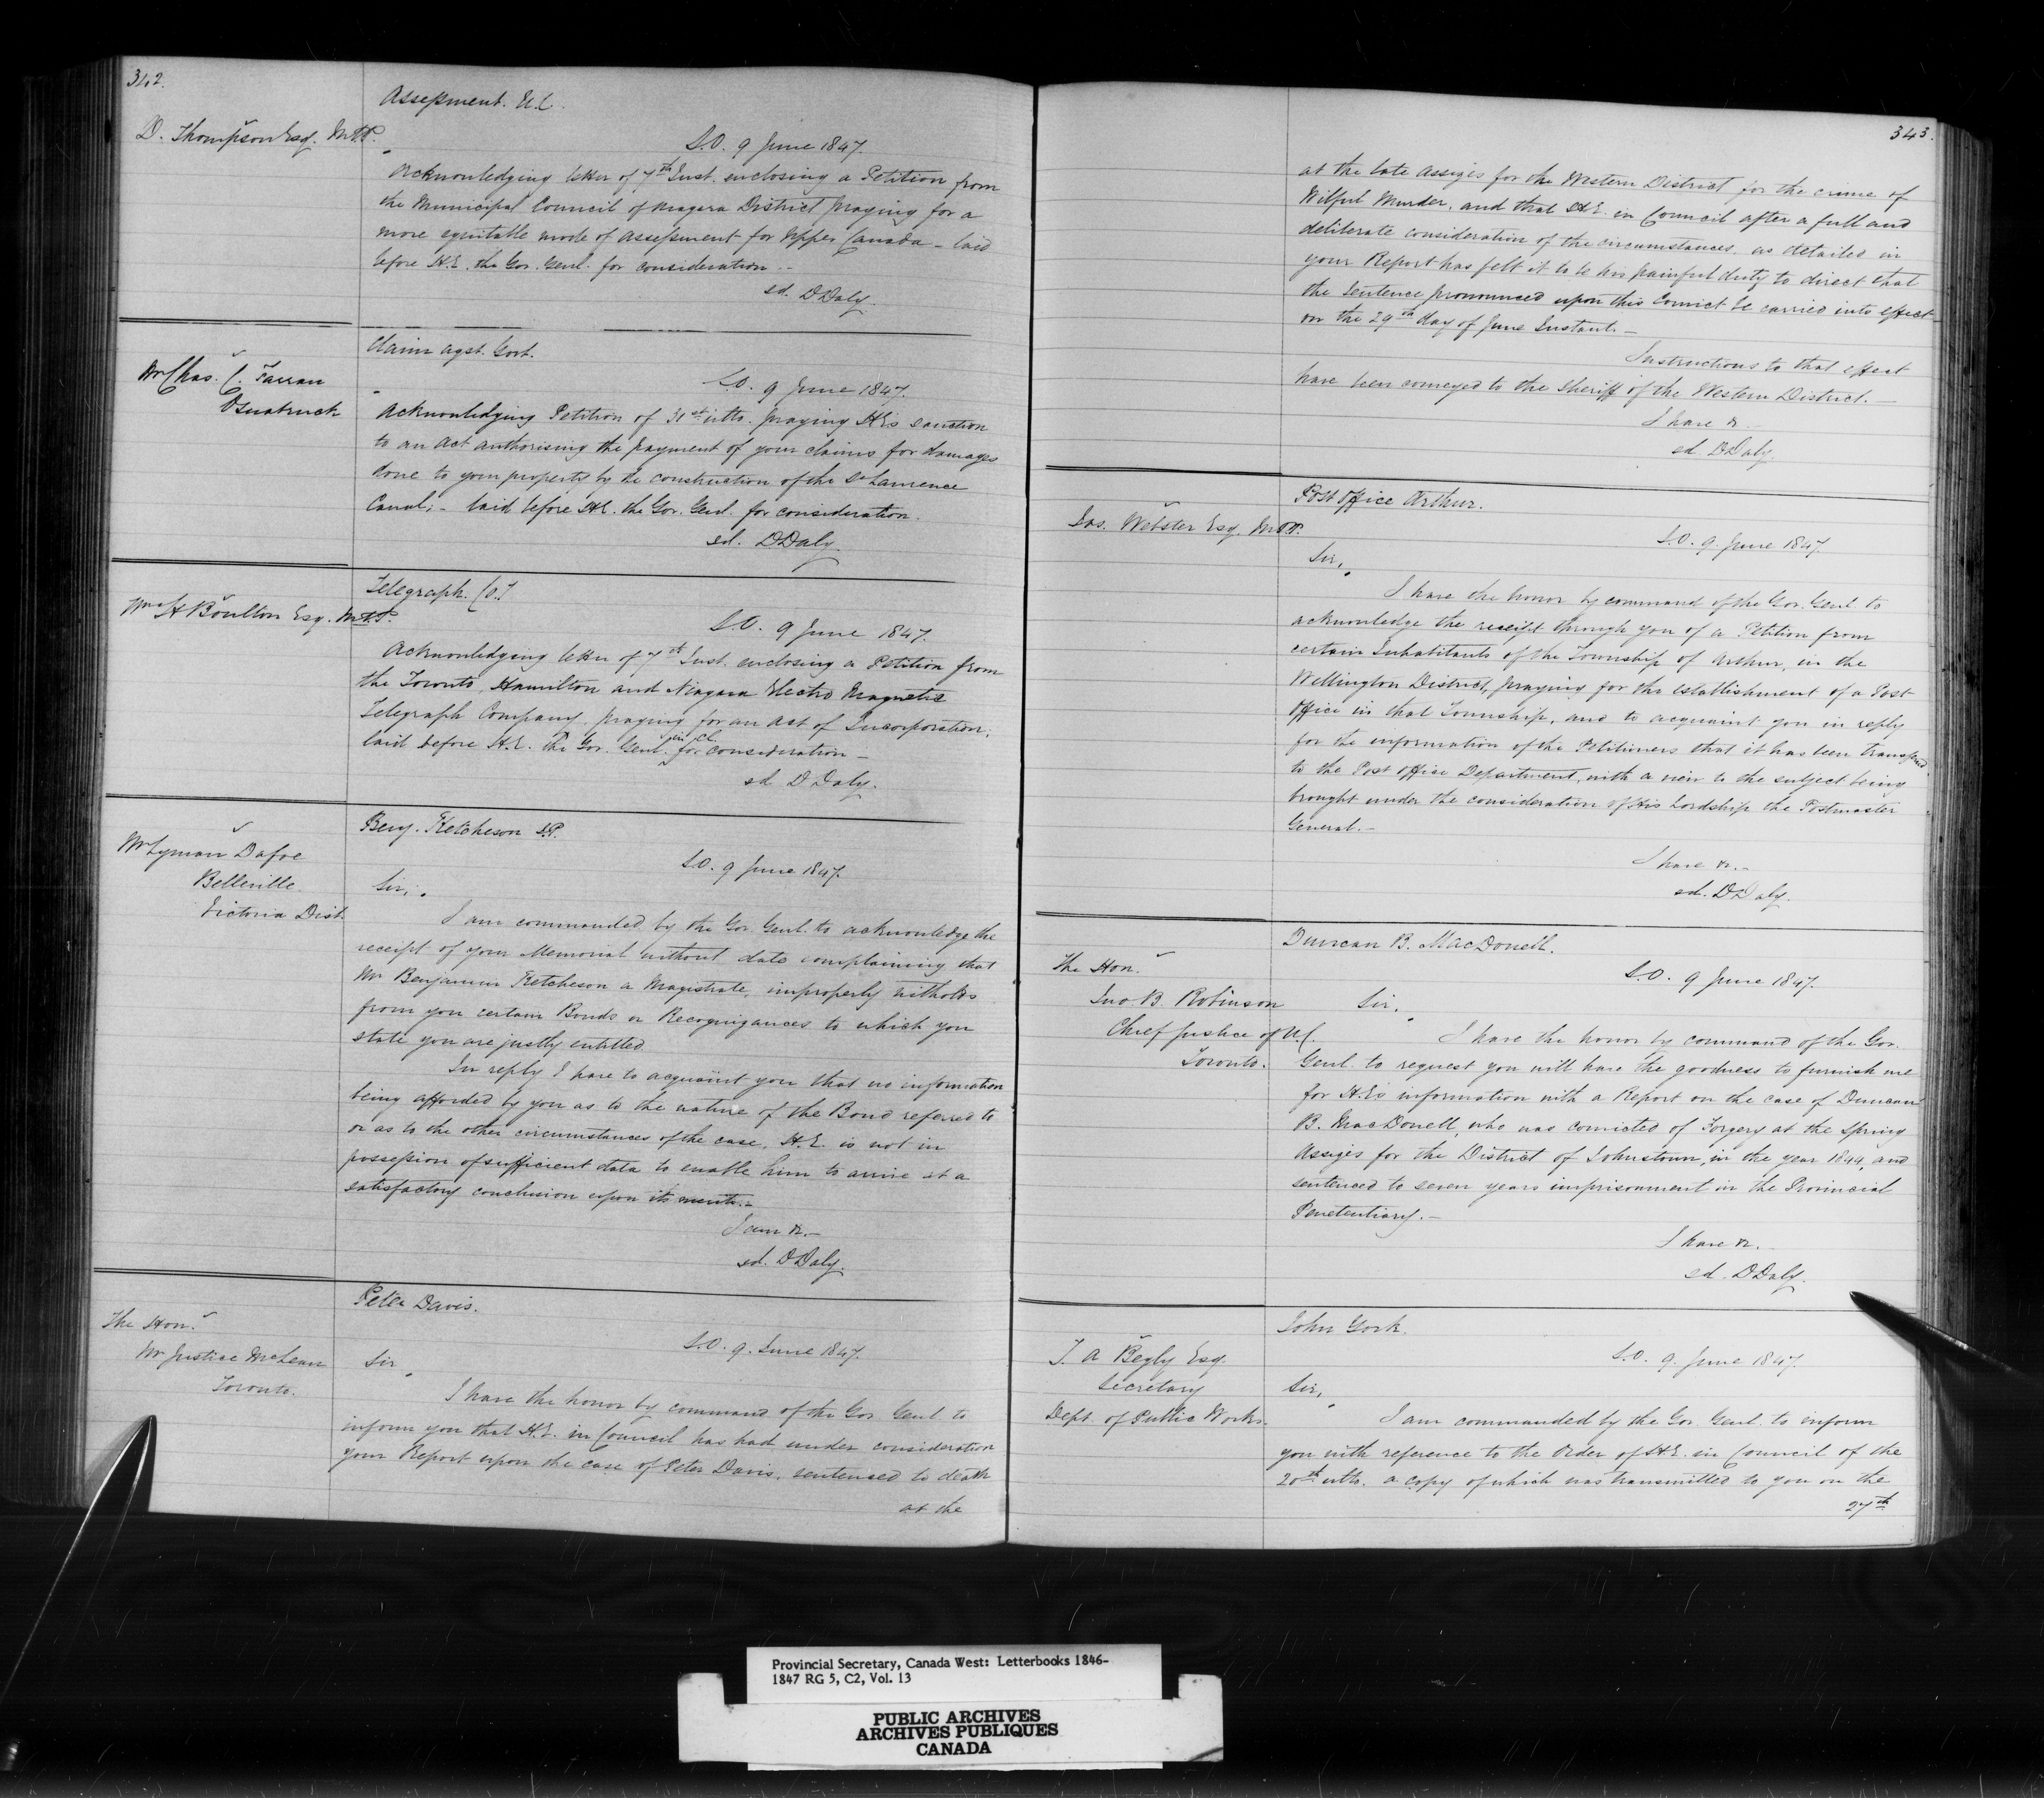 342.
Assessment. U.C.
D. Thompson Esq. M.P.P.
S.O. 9 June 1847.
Acknowledging letter of 7th Inst. enclosing a Petition from
the Municipal Council of Niagara District praying for a
more equitable mode of Assessment for Upper Canada - laid
before H.E. the Gov. Genl. for consideration -
sd. D Daly.
Claim agst. Govt.
Mr Chas. C. Farran
Osnabruck
S.O. 9 June 1847.
Acknowledging Petition of 31st ulto. praying H.E's sanction
to an Act authorising the payment of your claims for damages
done to your property by the construction of the St Lawrence
Canal; - laid before H.E. the Gov. Genl. for consideration.
sd. D Daly.
Telegraph. Co.
Wm H Boulton Esq. M.P.P.
S.O. 9 June 1847.
Acknowledging letter of 7th Inst. enclosing a Petition from
the Toronto, Hamilton and Niagara Electro Magnetic
Telegraph Company praying for an Act of Incorporation;
laid before H.E. the Gov. Genl. in Cl. for consideration -
sd D Daly.
Benj. Ketcheson J.P.
Mr Lyman Dafoe
Belleville
Victoria Dist.
S.O. 9 June 1847.
Sir,
I am commanded by the Gov. Genl. to acknowledge the
receipt of your Memorial without date complaining that
Mr Benjamin Ketcheson a Magistrate, improperly witholds
from you certain Bonds or Recognizances to which you
state you are justly entitled.
In reply I have to acquaint you that no information
being afforded by you as to the nature of the Bond referred to
or as to the other circumstances of the case, H.E. is not in
possession of sufficient data to enable him to arrive at a
satisfactory conclusion upon its merits.-
I am &.-
sd. D Daly.
Peter Davis.
The Hon.
Mr Justice McLean
Toronto.
S.O. 9. June 1847.
Sir
I have the honor by command of the Gov. Genl. to
inform you that H.E. in Council has had under consideration
your Report upon the case of Peter Davis, sentenced to death
at the
343.
at the late Assizes for the Western District for the crime of
Wilful Murder, and that H.E. in Council after a full and
deliberate consideration of the circumstances, as detailed in
your Report has felt it to be his painful duty to direct that
the sentence pronounced upon this Convict be carried into effect
on the 29th day of June Instant. -
Instructions to that effect
have been conveyed to the Sheriff of the Western District. -
I have &. -
sd. D Daly
Post Office Arthur.
Jas. Webster Esq. M.P.P.
S.O. 9. June 1847.
Sir,
I have the honor by command of the Gov. Genl. to
acknowledge the receipt through you of a Petition from
certain Inhabitants of the Township of Arthur, in the
Wellington District, praying for the establishment of a Post
Office in that Township, and to acquaint you in reply
for the information of the Petitioners that it has been transferred
to the Post Office Department, with a view to the subject being
brought under the consideration of His Lordship the Postmaster
General. -
I have &. -
sd. D Daly.
Duncan B. MacDonell.
The Hon.
Jno B. Robinson
Chief Justice of U.C.
Toronto.
S.O. 9 June 1847.
Sir,
I have the honor by command of the Gov.
Genl. to request you will have the goodness to furnish me
for H.E's information with a Report on the case of Duncan
B. MacDonell, who was convicted of Forgery at the Spring
Assizes for the District of Johnstown, in the year 1844, and
sentenced to seven years imprisonment in the Provincial
Penetentiary. -
I have &.
sd. D Daly.
John York.
T. A Begly Esq.
Secretary
Dept. of Public Works.
S.O. 9. June 1847.
Sir,
I am commanded by the Gov. Genl. to inform
you with reference to the Order of H.E. in Council of the
20th ulto. a copy of which was transmitted to you on the
27th
Provincial Secretary, Canada West: Letterbooks 1846-
1847 RG 5, C2, Vol. 13
PUBLIC ARCHIVES
ARCHIVES PUBLIQUES
CANADA